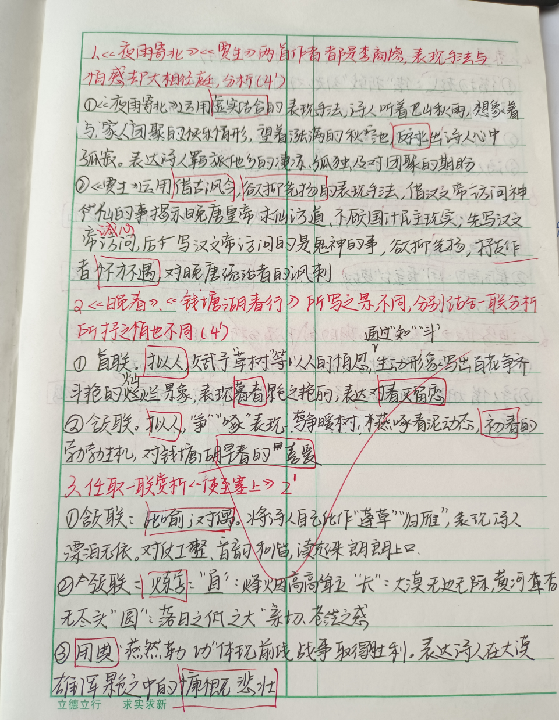 1.《夜雨寄北》《贾生》两首作者都是李商隐，表现手法与
情感却大相径庭，分析(4')
①《夜雨寄北》运用虚实结合的表现手法，诗人听着巴山秋雨，想象着
与家人团聚的快乐情形，望着涨满的秋池 衬出诗人心中
孤寂。表达诗人羁旅他乡的凄凉、孤独及对团聚的期盼
②《贾生》运用借古讽今，欲抑先扬的表现手法，借汉文帝访问神
仙的事揭示晚唐皇帝求仙访道，不顾国计民生现实，先写汉文
诚心
帝访问，后扩写汉文帝访问的是鬼神的事，欲抑先扬，抒发作
者怀才不遇 对晚唐统治者的讽刺
2.《晚春》、《钱塘湖春行》所写之景不同，分别结合一联分析
所抒之情也不同(4')
通过"知""斗"
①首联。拟人 赋予草树等以人的相思，生动形象写出百花争齐
斗艳的灿烂景象，表现暮春艳丽，表达对春天留恋
②颔联。拟人，"争""啄"表现 莺争暖树，燕啄春泥动态，初春的
勃勃生机，对钱塘湖早春的喜爱
3.任取一联赏析《使至塞上》2'
①颔联：此喻，对偶。将诗人自己比作"蓬草""归雁"，表现诗人
漂泊无依。对仗工整，音韵和谐，读起来朗朗上口
②颈联：炼字："直"：烽烟高高耸立 "长"：大漠无边无际，黄河杳杳
无尽头"圆"：落日之低之大 亲切、苍茫之感
③用典"燕然勒功"体现前线战争取得胜利。表达诗人在大漠
雄浑景色之中的慷慨悲壮
立德立行 求实求新